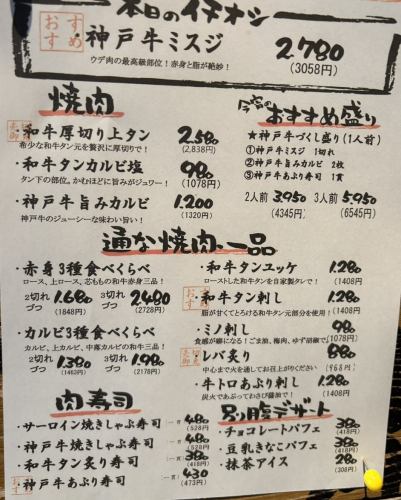 本日のイチオシ
おすすめ
神戸牛ミスジ 2.780
ウデ肉の最高級部位!赤身と脂が絶妙!
(3058円)
焼肉
・和牛厚切り上タン 2.580
希少な和牛タン元を贅沢に厚切りで!
(2,838円)
・和牛タンカルビ塩 980
タン下の部位。かむほどに旨みがジュワー!
(1078円)
・神戸牛旨みカルビ 1.200
神戸牛のジューシーな味わい旨い!
(1320円)
今宵のおすすめ盛り
★神戸牛づくし盛り(1人前)
①神戸牛ミスジ 1切れ
②神戸牛旨みカルビ 2枚
③神戸牛あぶり寿司 1貫
2人前 3.950 3人前 5.950
(4345円) (6545円)
通な焼肉、一品
・赤身3種食べくらべ
ロース、上ロース、芯もも の和牛赤身三品!
2切れづつ 1.680 3切れづつ 2480
(1848円) (2728円)
・カルビ3種食べくらべ
カルビ、上カルビ、中落カルビの和牛三品!
2切れづつ 1.380 3切れづつ 1.980
(2178円)
・和牛タンユッケ 1.280
ローストした和牛タンを自家製タレで!
(1408円)
おすすめ
・和牛タン刺し 1.280
脂が甘くてとろける和牛タン元部分を使用!
(1408円)
・ミノ刺し 980
食感が癖になる!ごま油、梅肉、ゆず胡椒で
(1078円)
・レバ炙り 880
中心まで火を通してお召上がりください
(968円)
・牛トロあぶり刺し 1.280
炭火であぶってわさび醤油で!
(1408円)
肉寿司
・サーロイン焼きしゃぶ寿司 一貫 480
(528円)
・神戸牛焼きしゃぶ寿司 一貫 480
(528円)
・和牛タン炙り寿司 一貫 380
(418円)
おす
・神戸牛あぶり寿司 一貫 430
(473円)
別腹デザート
・チョコレートパフェ 380
(418円)
・豆乳きなこパフェ 380
(418円)
・抹茶アイス 280
(308円)